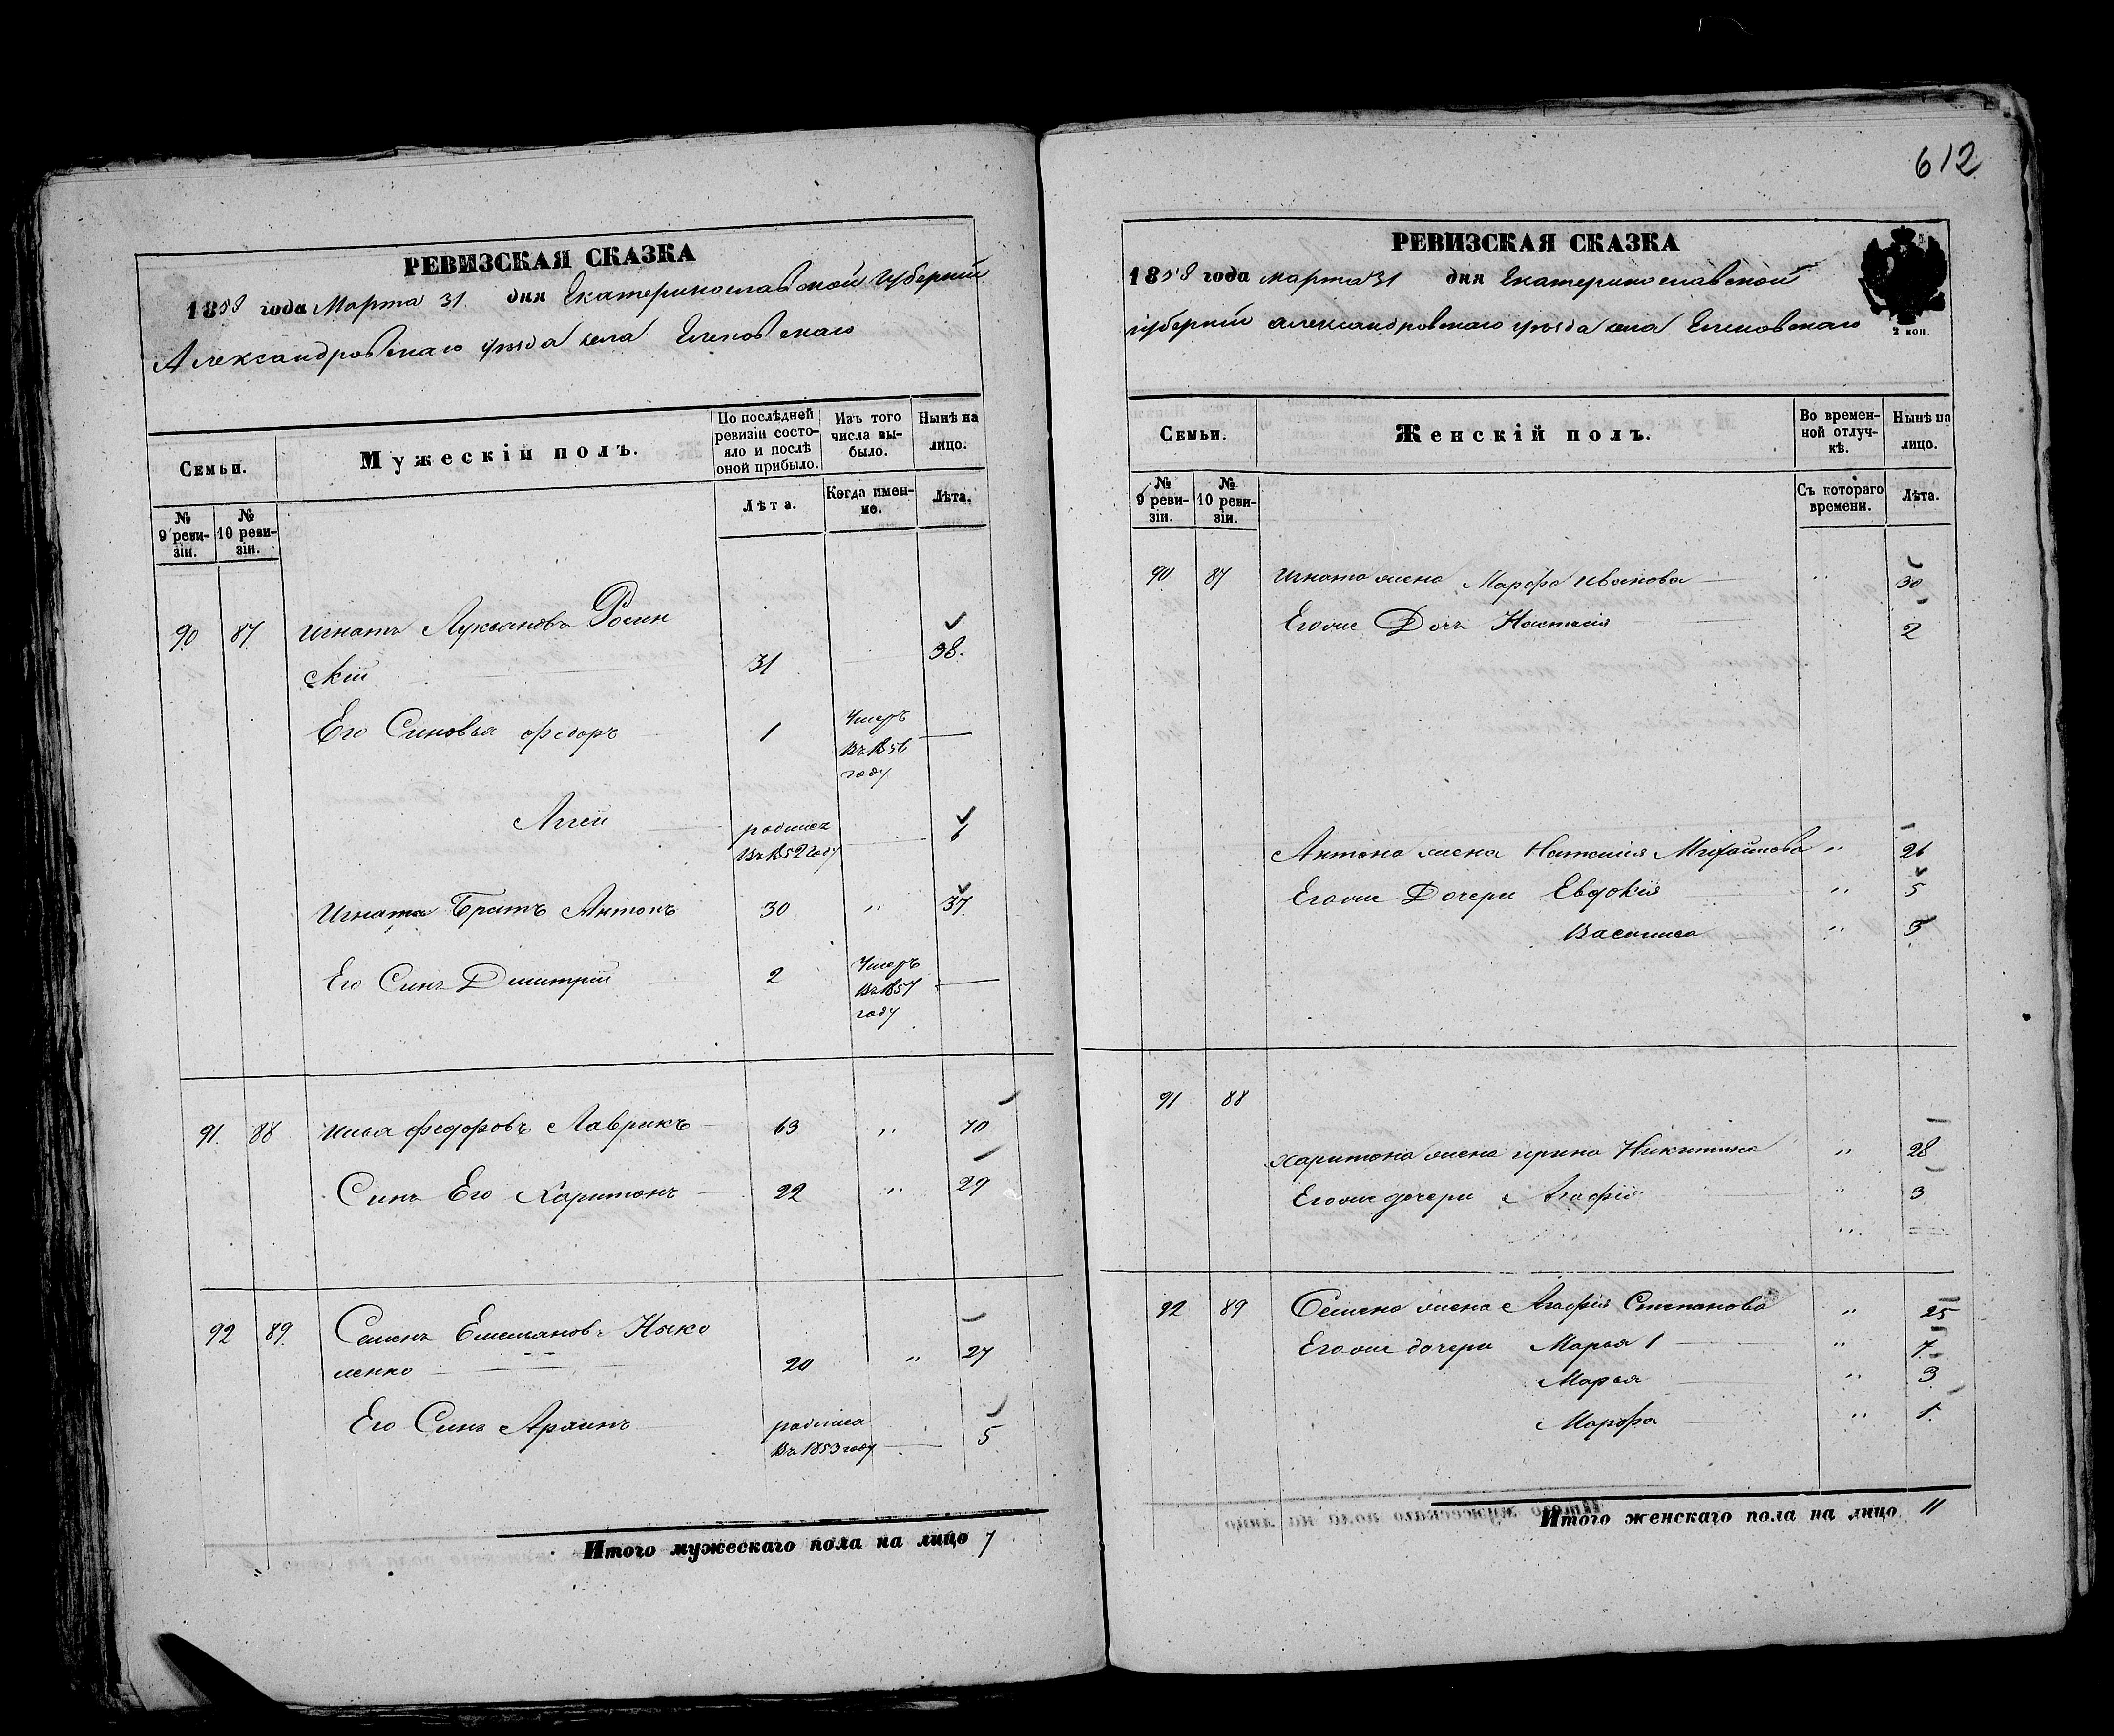 612
РЕВИЗСКАЯ СКАЗКА
1858 года Марта 31 дня Екатеринославской Губернии
Александровскаго уѣзда села Еленовскаго
Семьи.
Мужескій полъ.
По послѣдней ревизіи состояло и послѣ оной прибыло.
Изъ того числа выбыло.
Нынѣ на лицо.
№ 9 ревизіи.
№ 10 ревизіи.
Лѣта.
Когда именно.
Лѣта.
90 87. Игнатъ Лукьяновъ Росин
скій 31 38.
Его Синовья Федоръ 1 Умеръ
Въ 1856
году
Аггей родился
Въ 1852 году 6
Игната Братъ Антонъ 30 " 37.
Его Синъ Дмитрій 2 Умеръ
Въ 1857
году
91. 88 Илья Федоровъ Лаврикъ 63 " 70
Синъ Его Харитонъ 22 " 29
92 89. Семенъ Емельяновъ Ныко
ленко 20 " 27
Его Синъ родился
Въ 1853 году 5
Итого мужескаго пола на лицо 7
РЕВИЗСКАЯ СКАЗКА
1858 года марта 31 дня Екатеринославской
губерніи александровскаго уѣзда села Еленовскаго
2 коп.
Семьи.
Женскій полъ.
Во временной отлучкѣ.
Нынѣ на лицо.
№ 9 ревизіи.
№ 10 ревизіи.
Съ котораго времени.
Лѣта.
90 87 Игната жена Марфа Иванова " 30
Егоже Дочь Настасія 2
Антона жена Наталия Михайлова " 26
Егоже Дочери Евдокия " 5
Василиса " 3
91 88
Харитона жена Ирина Никитина " 28
Егоже дочери Агафія " 3
"
92 89 Семена жена Агафия Степанова " 25
Егоже дочери Марья 1 " 7
Марья " 3
Марфа " 1.
Итого женскаго пола на лицо 11